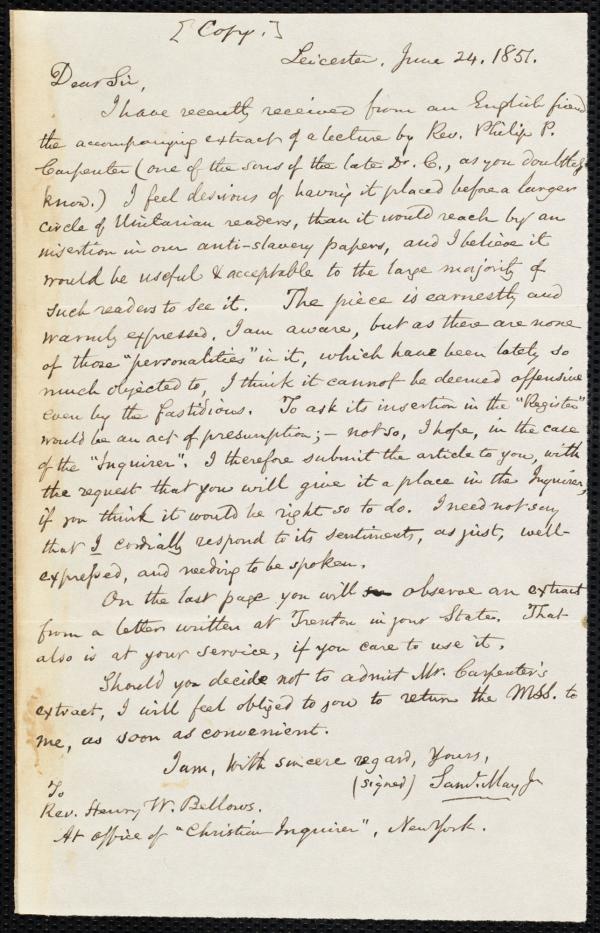 [Copy.]
Leicester, June 24. 1851.
Dear Sir,
I have recently received from an English friend
the accompanying extract of a lecture by Rev. Philip P.
Carpenter (one of the sons of the late Dr. C., as you doubtless
know.) I feel desirous of having it placed before a larger
circle of Unitarian readers, than it would reach by an
insertion in our anti-slavery papers, and I believe it
would be useful & acceptable to the large majority of
such readers to see it. The piece is earnestly and
warmly expressed, I am aware, but as there are none
of those "personalities" in it, which have been lately so
much objected to, I think it cannot be deemed offensive
even by the fastidious. To ask its insertion in the "Register"
would be an act of presumption; – not so, I hope, in the case
of the "Inquirer". I therefore submit the article to you, with
the request that you will give it a place in the Inquirer,
if you think it would be right so to do. I need not say
that I cordially respond to its sentiments, as just, well-
expressed, and needing to be spoken.
On the last page you will observe an extract
from a letter written at Trenton in your State. That
also is at your service, if you care to use it.
Should you decide not to admit Mr. Carpenter's
extract, I will feel obliged to you to return the MSS. to
me, as soon as convenient.
I am, with sincere regard, Yours,
(signed) Saml. May Jr
To
Rev. Henry W. Bellows.
At office of "Christian Inquirer", New York.